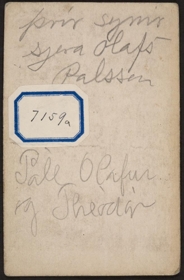 þrír synir
sjera Olafs
Palsson
7159a
Páll Olafur
og Theodór